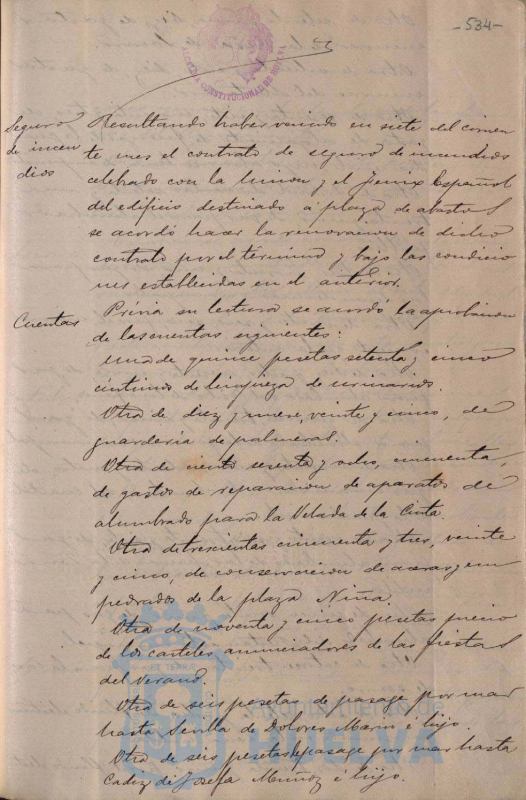 -534-
ALCALDIA CONSTITUCIONAL DE HUELVA
Seguro
de incen
dios
Resultando haber vencido en siete del corrien
te mes el contrato de seguro de incendios
celebrado con la Union y el Fenix Español
del edificio destinado á plaza de abastos
se acordó hacer la renovacion de dicho
contrato por el término y bajo las condicio
nes establecidas en el anterior.
Cuentas
Prévia su lectura se acordó la aprobacion
de las cuentas siguientes:
Una de quince pesetas setenta y cinco
céntimos de limpieza de urinarios.
Otra de diez y nueve, veinte y cinco, de
guardería de palmeras.
Otra de ciento setenta y ocho, cincuenta,
de gastos de reparacion de aparatos de
alumbrado para la Velada de la Cinta.
Otra de trescientas cincuenta y tres, veinte
y cinco, de conservacion de aceras y em
pedrados de la plaza Niña.
Otra de noventa y cinco pesetas precio
de los carteles anunciadores de las fiestas
del Verano.
Otra de seis pesetas de pasage por mar
hasta Sevilla de Dolores Marin é hijo.
Otra de seis pesetas pasage por mar hasta
Cadiz de Josefa Muñoz é hijo.
HUELVA